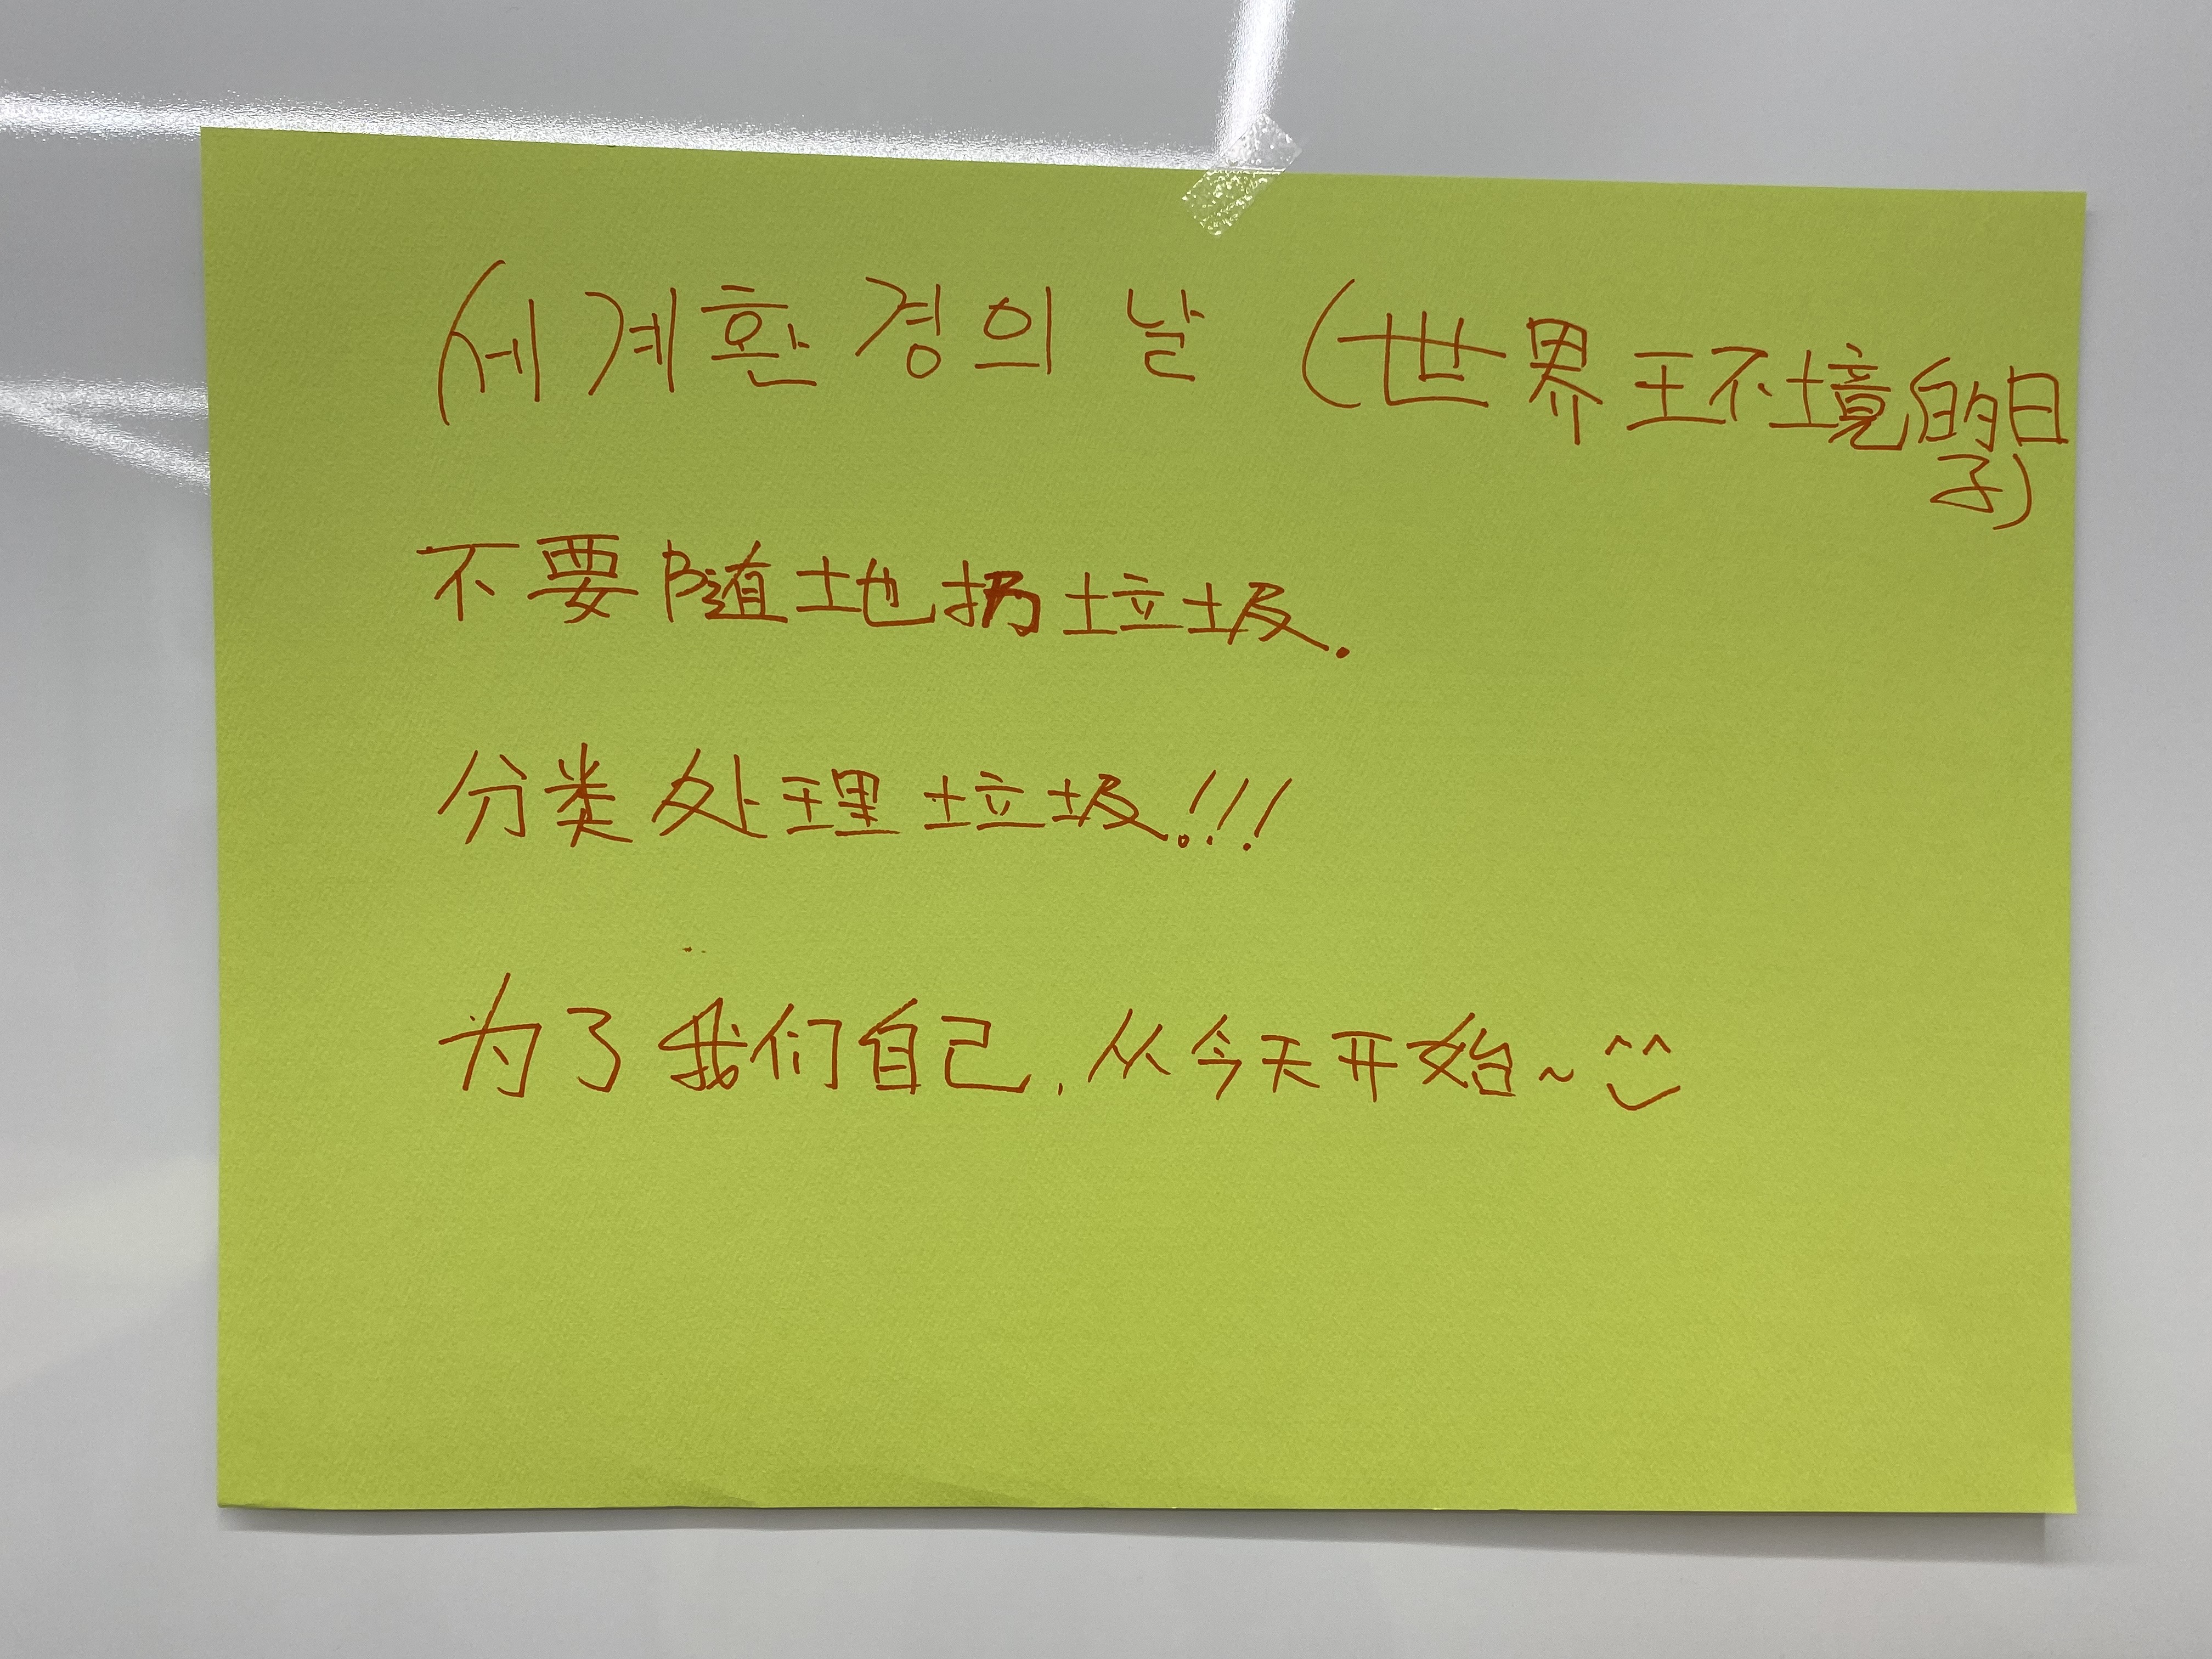 (세계환경의 날 (世界环境的日
子)
不要随地扔垃圾.
分类处理垃圾!!!
为了我们自己, 从今天开始~ ^^